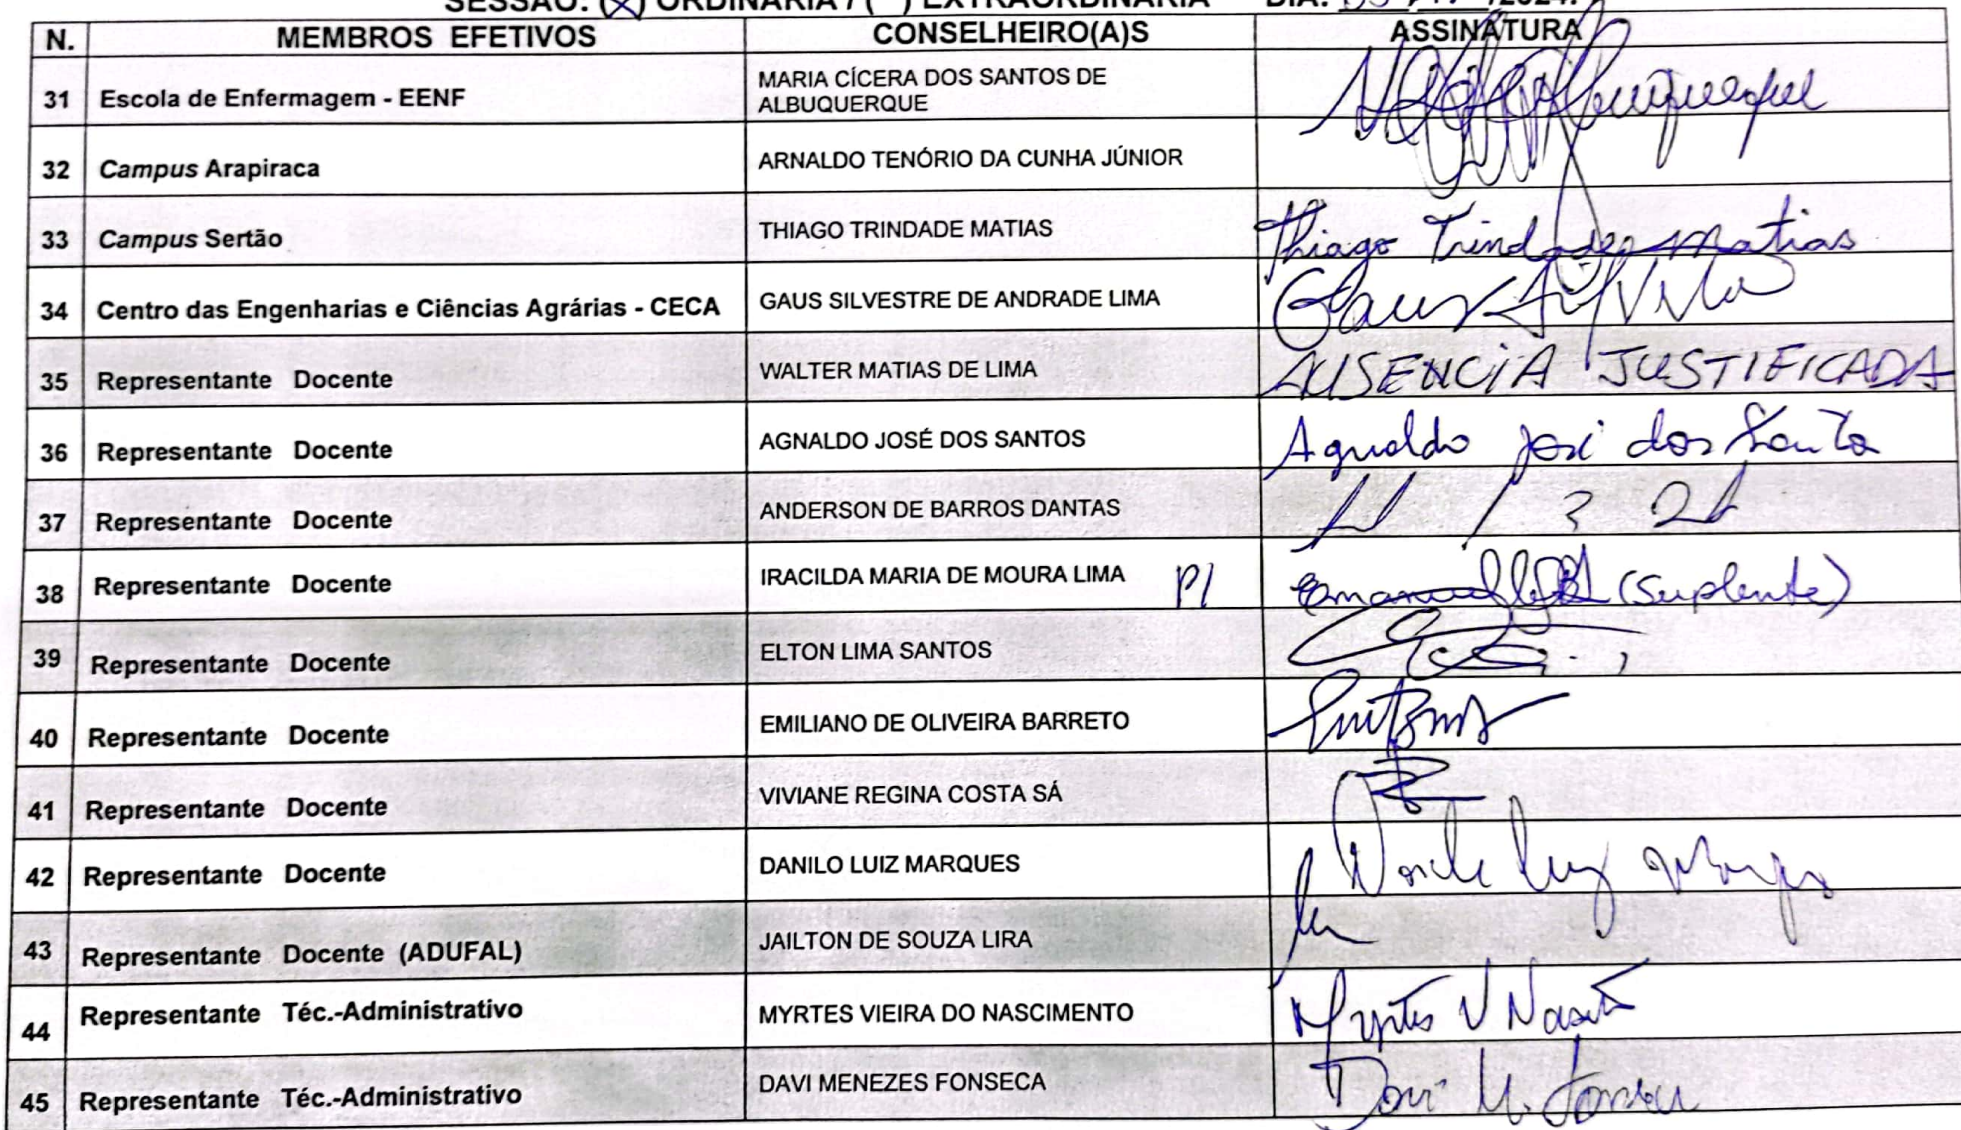 SESSÃO: (X) ORDINÁRIA / ( ) EXTRAORDINÁRIA DIA: /2024.
N. MEMBROS EFETIVOS CONSELHEIRO(A)S ASSINATURA
31 Escola de Enfermagem - EENF MARIA CÍCERA DOS SANTOS DE
ALBUQUERQUE Albuquerque
32 Campus Arapiraca ARNALDO TENÓRIO DA CUNHA JÚNIOR
33 Campus Sertão THIAGO TRINDADE MATIAS Thiago Trindade Matias
34 Centro das Engenharias e Ciências Agrárias - CECA GAUS SILVESTRE DE ANDRADE LIMA Gaus
35 Representante Docente WALTER MATIAS DE LIMA AUSENCIA JUSTIFICADA
36 Representante Docente AGNALDO JOSÉ DOS SANTOS Agnaldo José dos Santos
37 Representante Docente ANDERSON DE BARROS DANTAS
38 Representante Docente IRACILDA MARIA DE MOURA LIMA P/ (Suplente)
39 Representante Docente ELTON LIMA SANTOS
40 Representante Docente EMILIANO DE OLIVEIRA BARRETO
41 Representante Docente VIVIANE REGINA COSTA SÁ
42 Representante Docente DANILO LUIZ MARQUES Danilo Luiz Marques
43 Representante Docente (ADUFAL) JAILTON DE SOUZA LIRA
44 Representante Téc.-Administrativo MYRTES VIEIRA DO NASCIMENTO Myrtes V
45 Representante Téc.-Administrativo DAVI MENEZES FONSECA Davi M. Fonseca